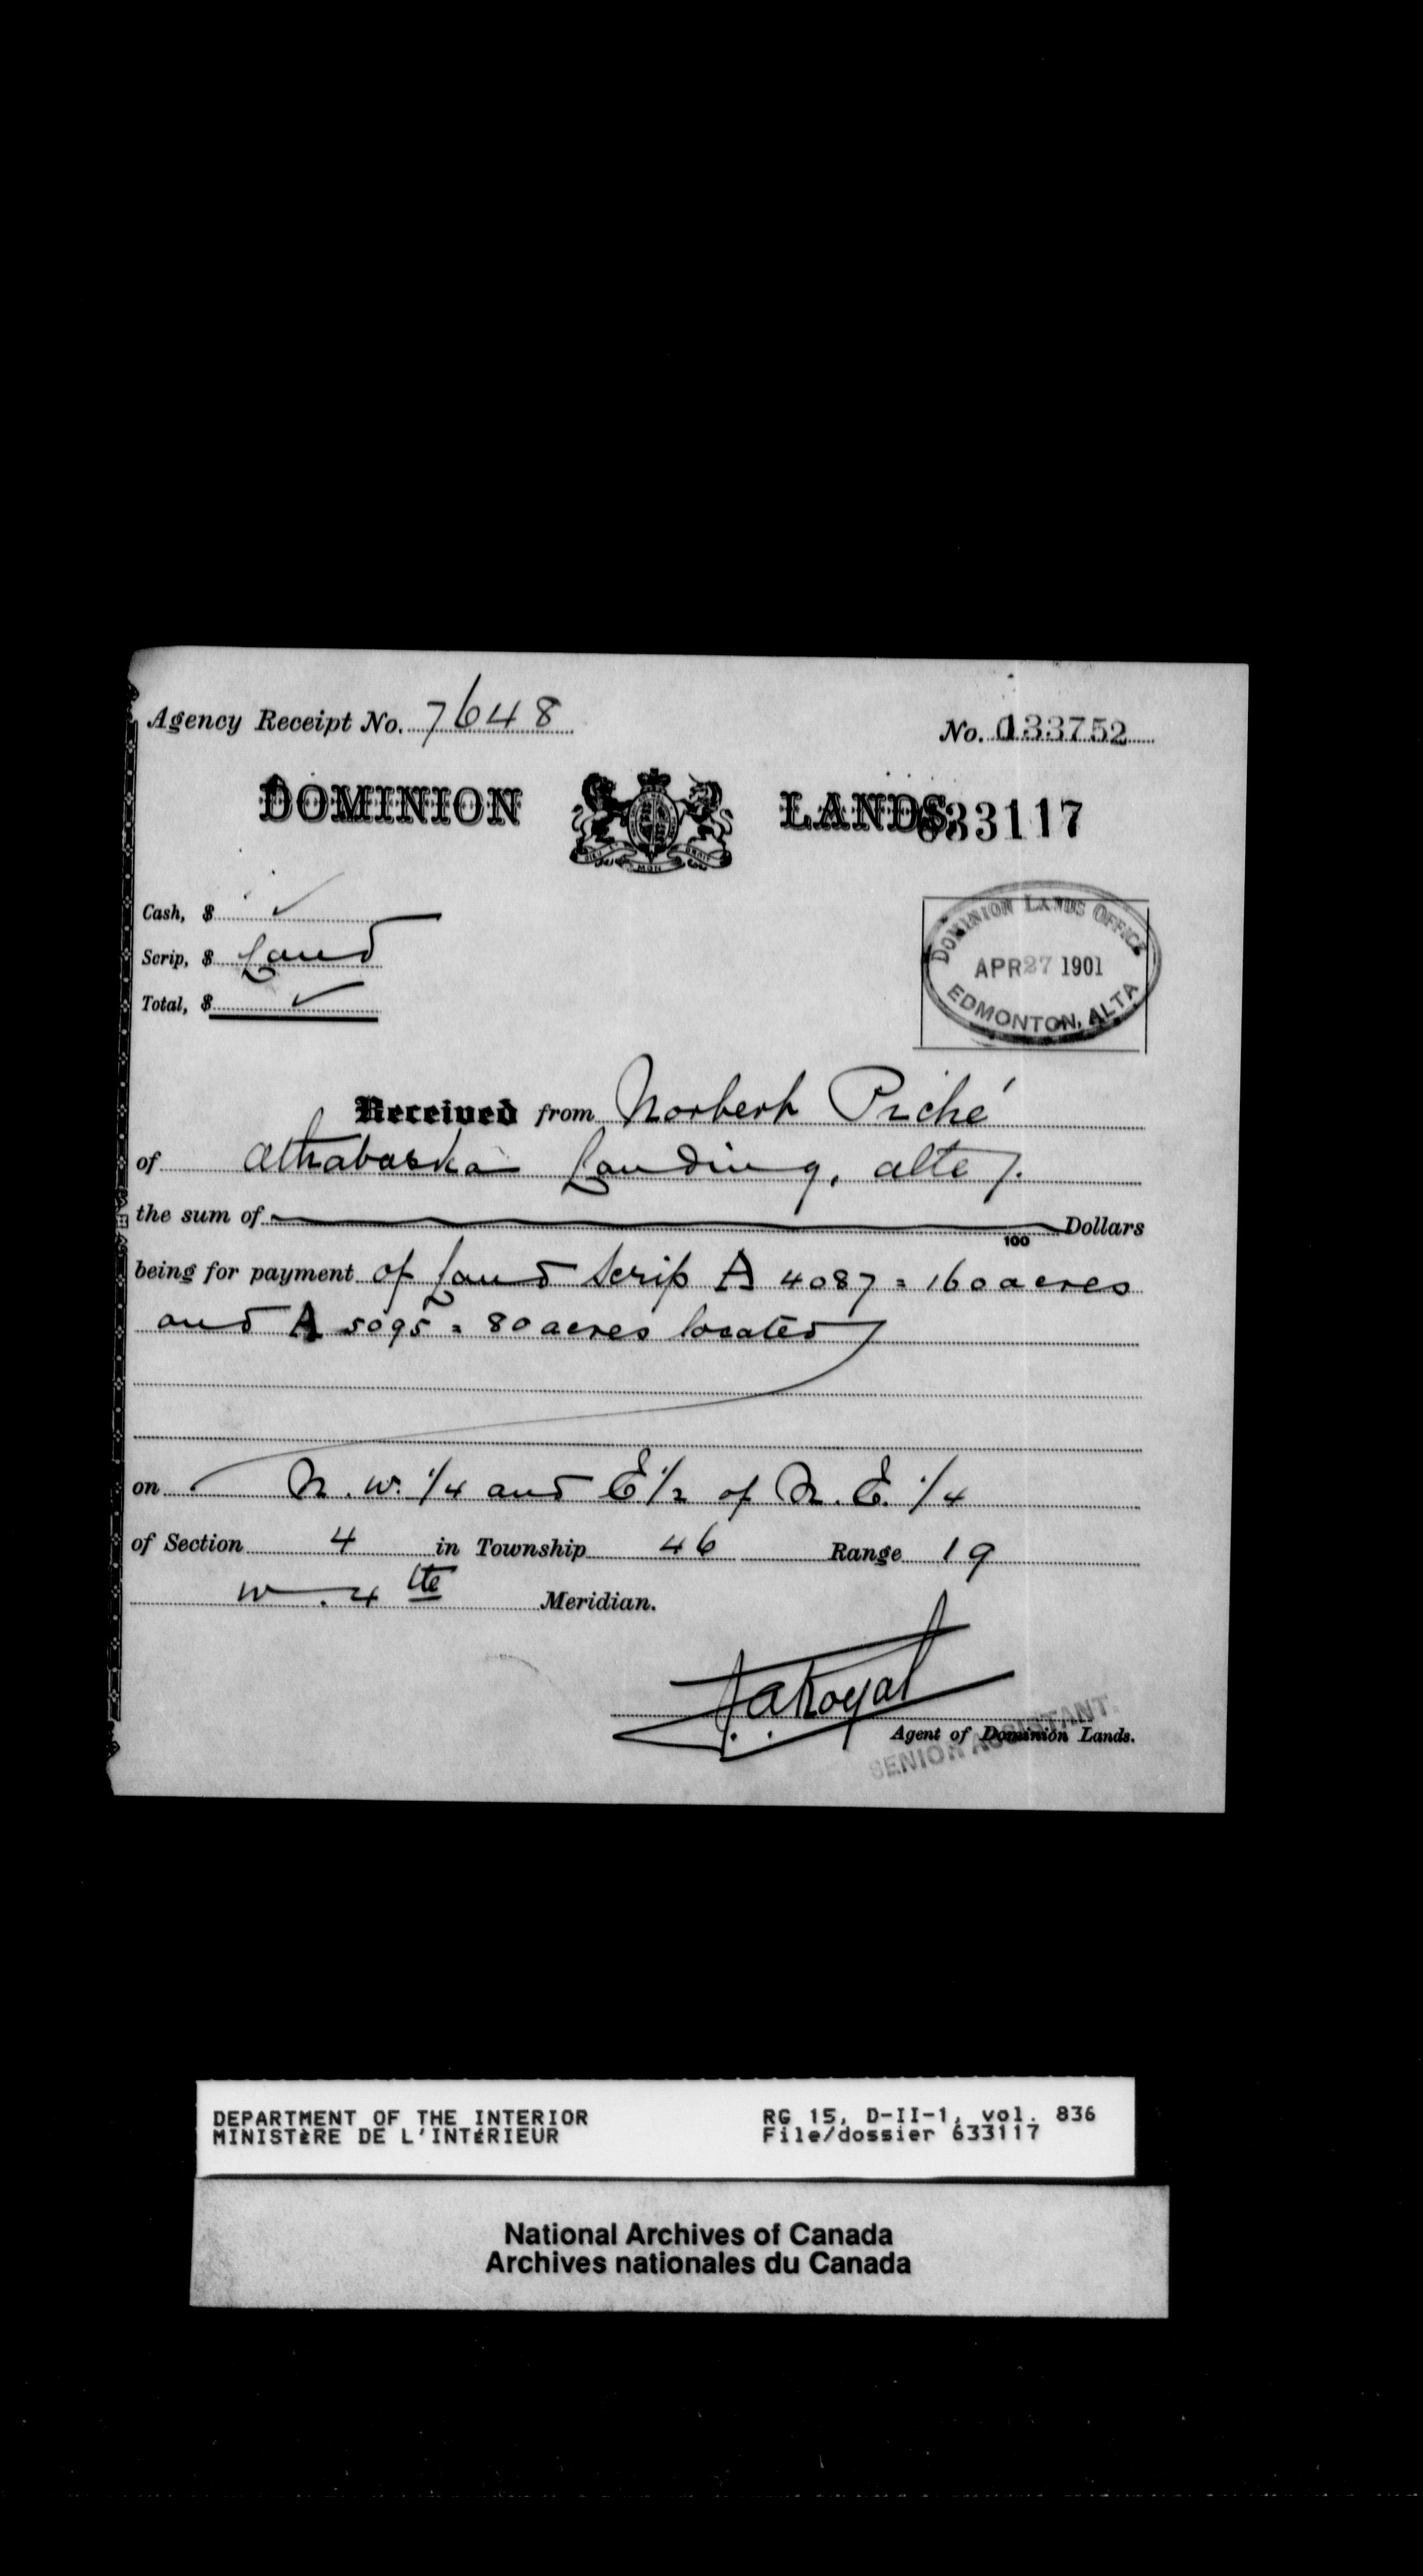 Agency Receipt No. 7648
No. 133752
DOMINION LANDS.
633117
Cash, $ ✓
Scrip, $ Land
Total, $ ✓
DOMINION LANDS OFFICE
APR 27 1901
EDMONTON, ALTA
Received from Norbert Piché
of Athabaska Landing, Alta
the sum of Dollars
100
being for payment of Land Scrip A 4087 = 160 acres
and A 5095 = 80 acres located
on N. W. 1/4 and E 1/2 of N. E. 1/4
of Section 4 in Township 46 Range 19
W. 4th Meridian.
J. A. Royal
Agent of Dominion Lands.
SENIOR ASSISTANT.
DEPARTMENT OF THE INTERIOR
MINISTÈRE DE L'INTÉRIEUR
RG 15, D-II-1, vol. 836
File/dossier 633117
National Archives of Canada
Archives nationales du Canada